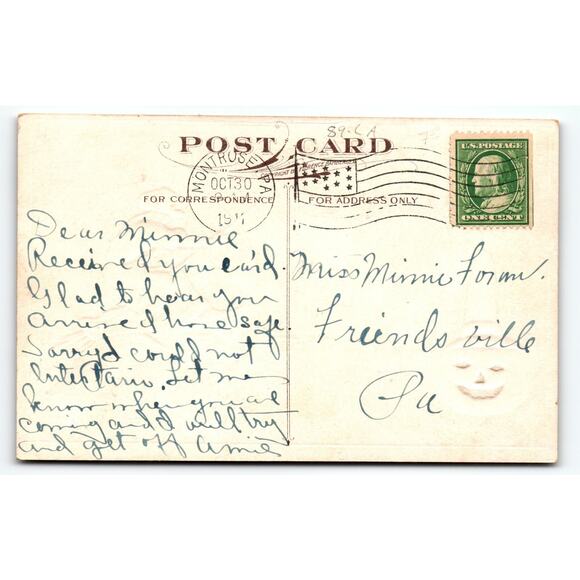 89-CA
POST CARD
U.S. POSTAGE
ONE CENT
MONTROSE, PA
OCT 30
1911
FOR CORRESPONDENCE
FOR ADDRESS ONLY
Dear Minnie
Received you card.
Glad to hear you
arrived home safe.
Sorry I could not
Entertain. Let me
know when you are
coming and I will try
and get off Amie
Miss Minnie Foran.
Friendsville
Pa